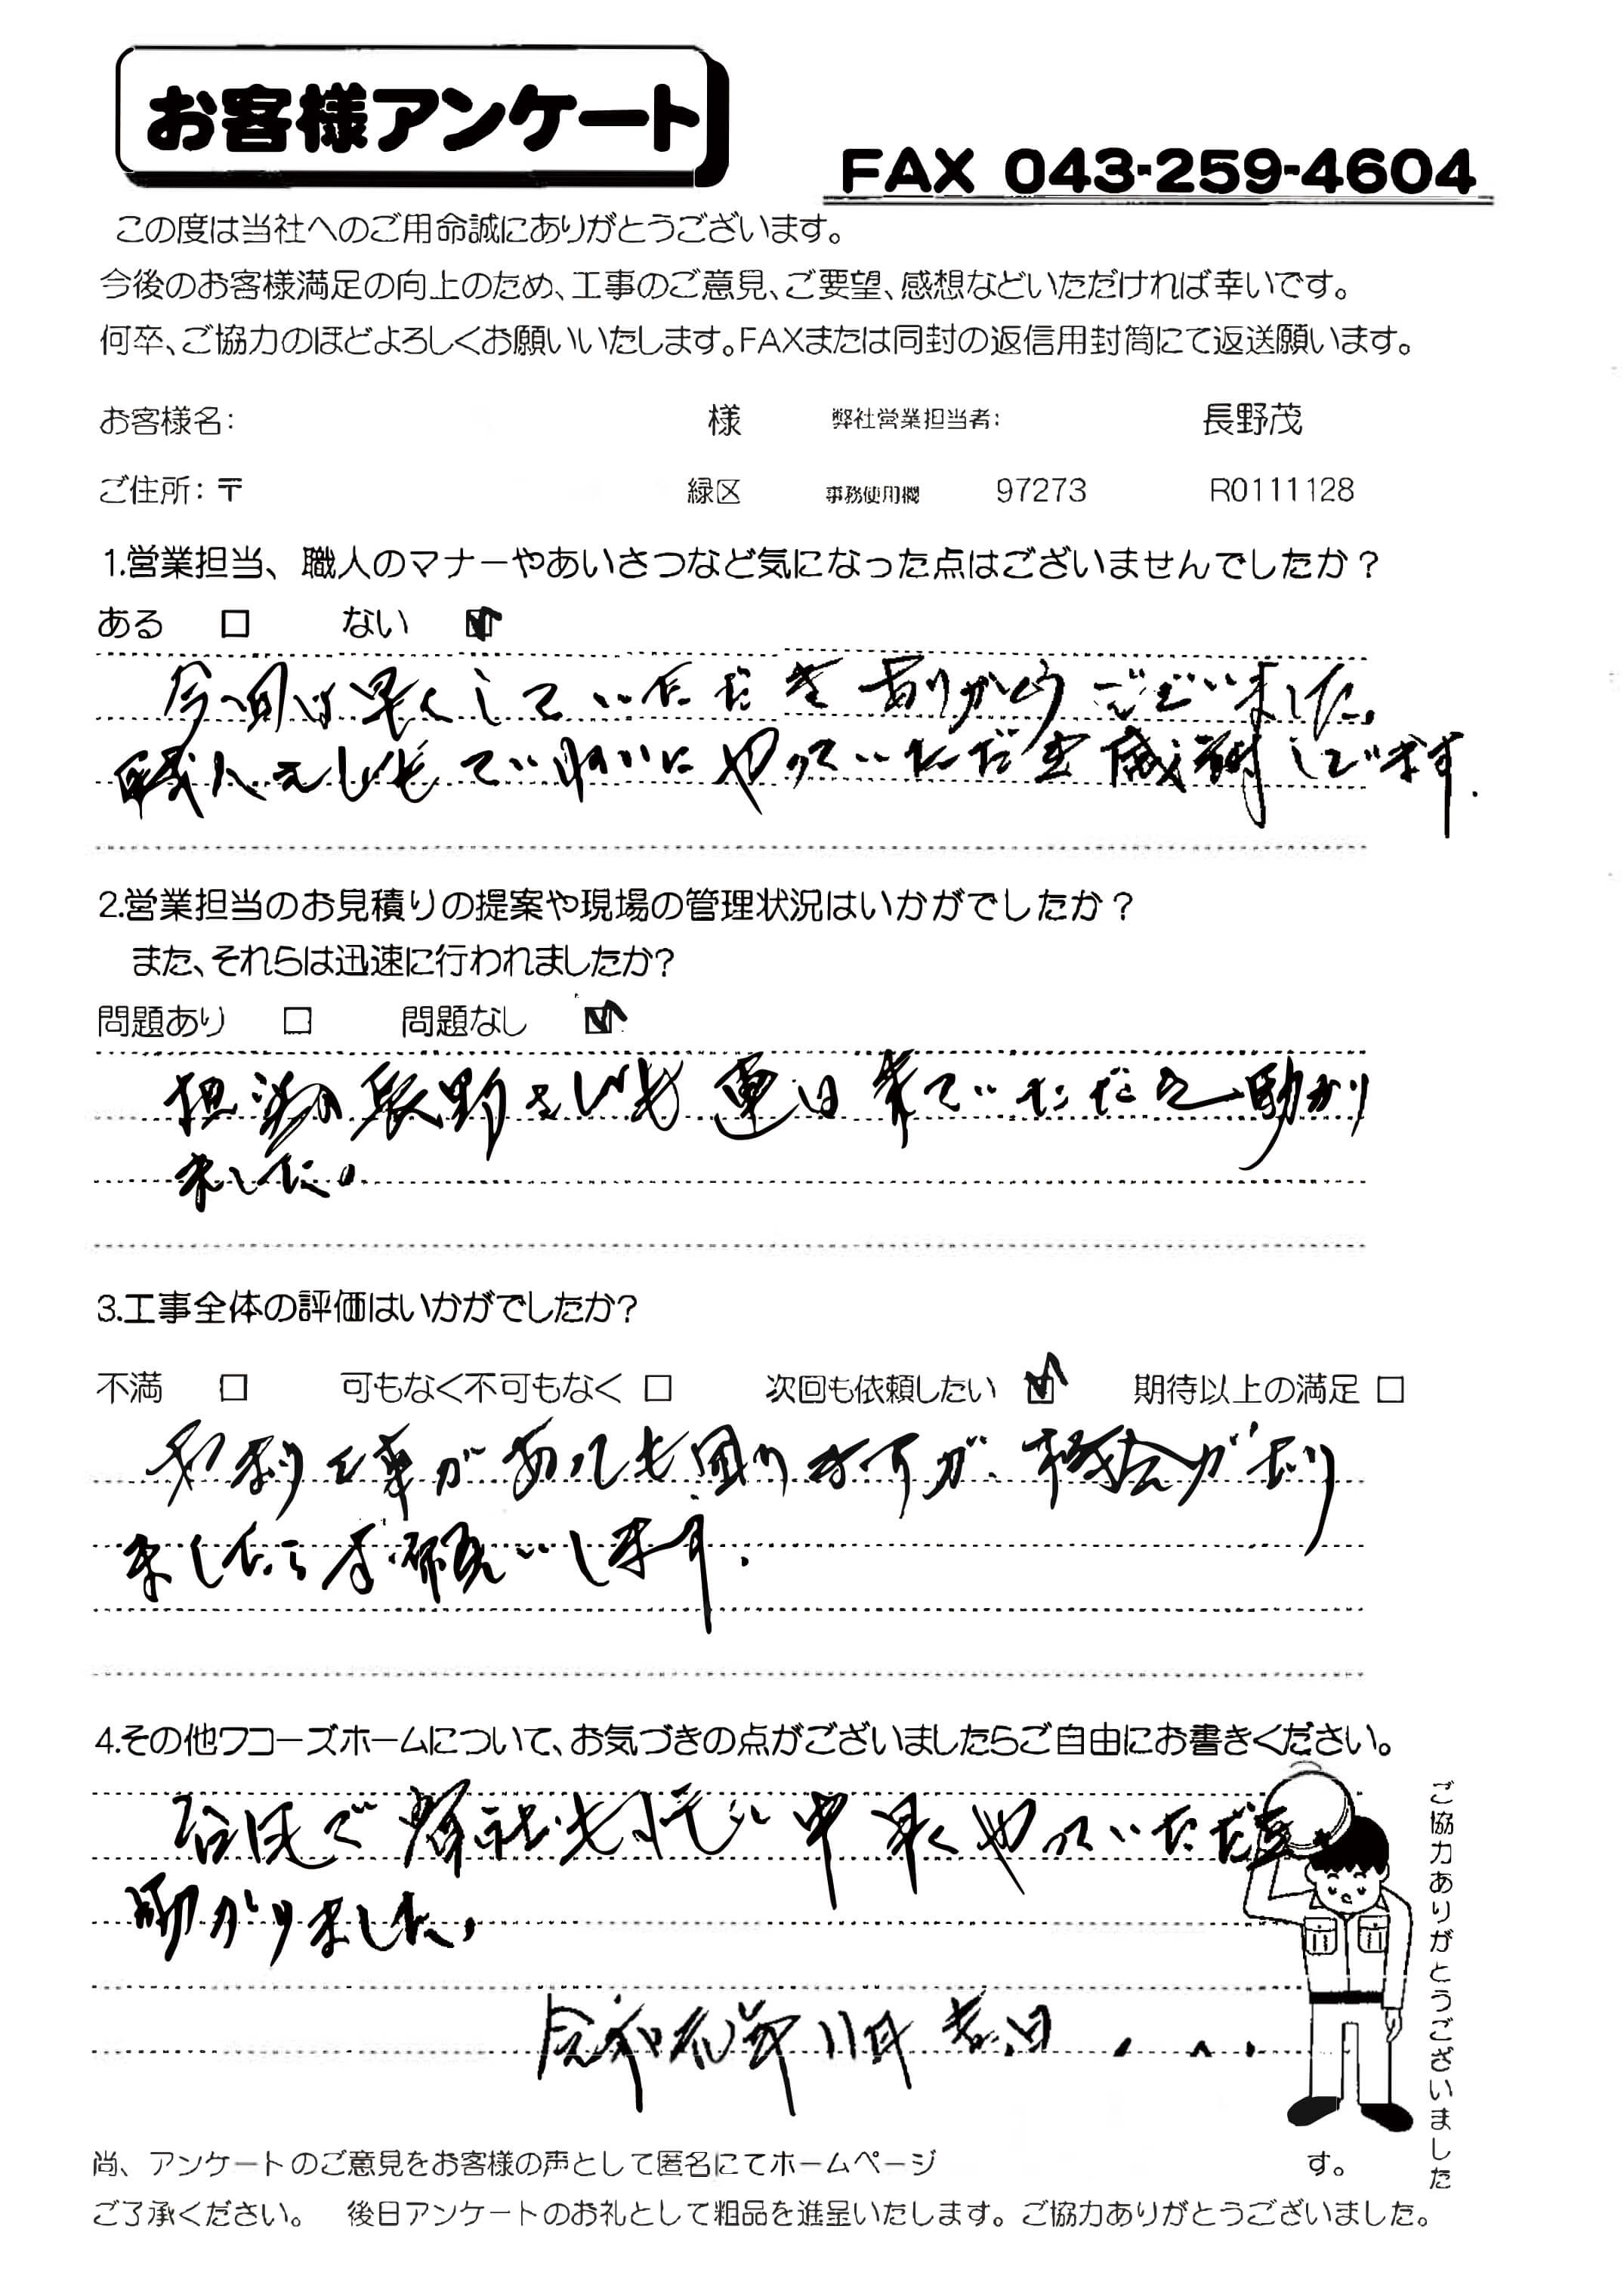 お客様アンケート
FAX 043-259-4604
この度は当社へのご用命誠にありがとうございます。
今後のお客様満足の向上のため、工事のご意見、ご要望、感想などいただければ幸いです。
何卒、ご協力のほどよろしくお願いいたします。FAXまたは同封の返信用封筒にて返送願います。
お客様名: 様 弊社営業担当者: 長野茂
ご住所:〒 緑区 事務使用欄 97273 R0111128
1.営業担当、職人のマナーやあいさつなど気になった点はございませんでしたか？
ある □ ない ☑
今回は早くしていただきありがとうございました。
職人さんもていねいにやっていただき感謝しています.
2.営業担当のお見積りの提案や現場の管理状況はいかがでしたか？
また、それらは迅速に行われましたか?
問題あり □ 問題なし ☑
担当の長野さんも 来ていただき助かり
ました。
3.工事全体の評価はいかがでしたか?
不満 □ 可もなく不可もなく □ 次回も依頼したい ☑ 期待以上の満足 □
余り工事があっても困りますが、機会があり
ましたらお願いします.
4.その他ワコーズホームについて、お気づきの点がございましたらご自由にお書きください。
台風で 早くやっていただき
助かりました。
令和元年11月吉日
ご協力ありがとうございました
尚、アンケートのご意見をお客様の声として匿名にてホームページ す。
ご了承ください。 後日アンケートのお礼として粗品を進呈いたします。ご協力ありがとうございました。